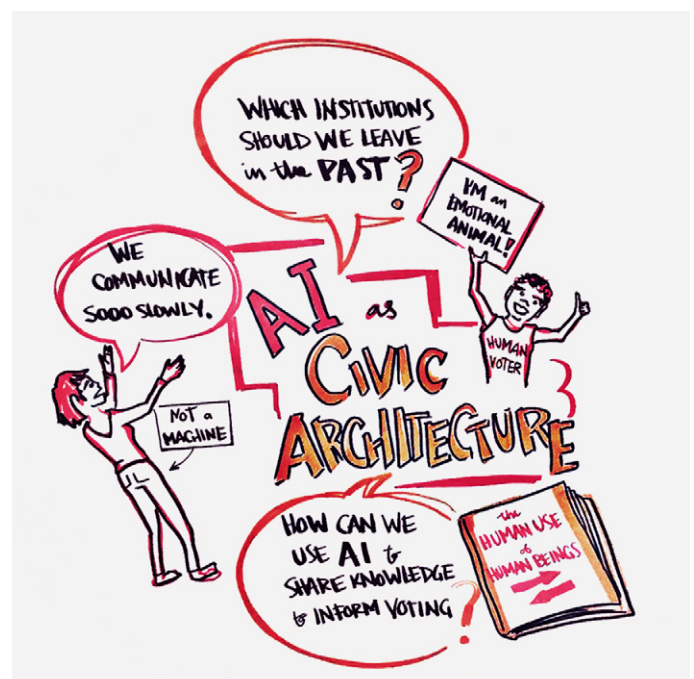 WHICH INSTITUTIONS
SHOULD WE LEAVE
in the PAST?
I'M an
EMOTIONAL
ANIMAL!
WE
COMMUNICATE
SOOO SLOWLY.
AI as
CIVIC
ARCHITECTURE
HUMAN
VOTER
NOT a
MACHINE
HOW CAN WE
USE AI to
SHARE KNOWLEDGE
to INFORM VOTING?
the
HUMAN USE
of
HUMAN BEINGS